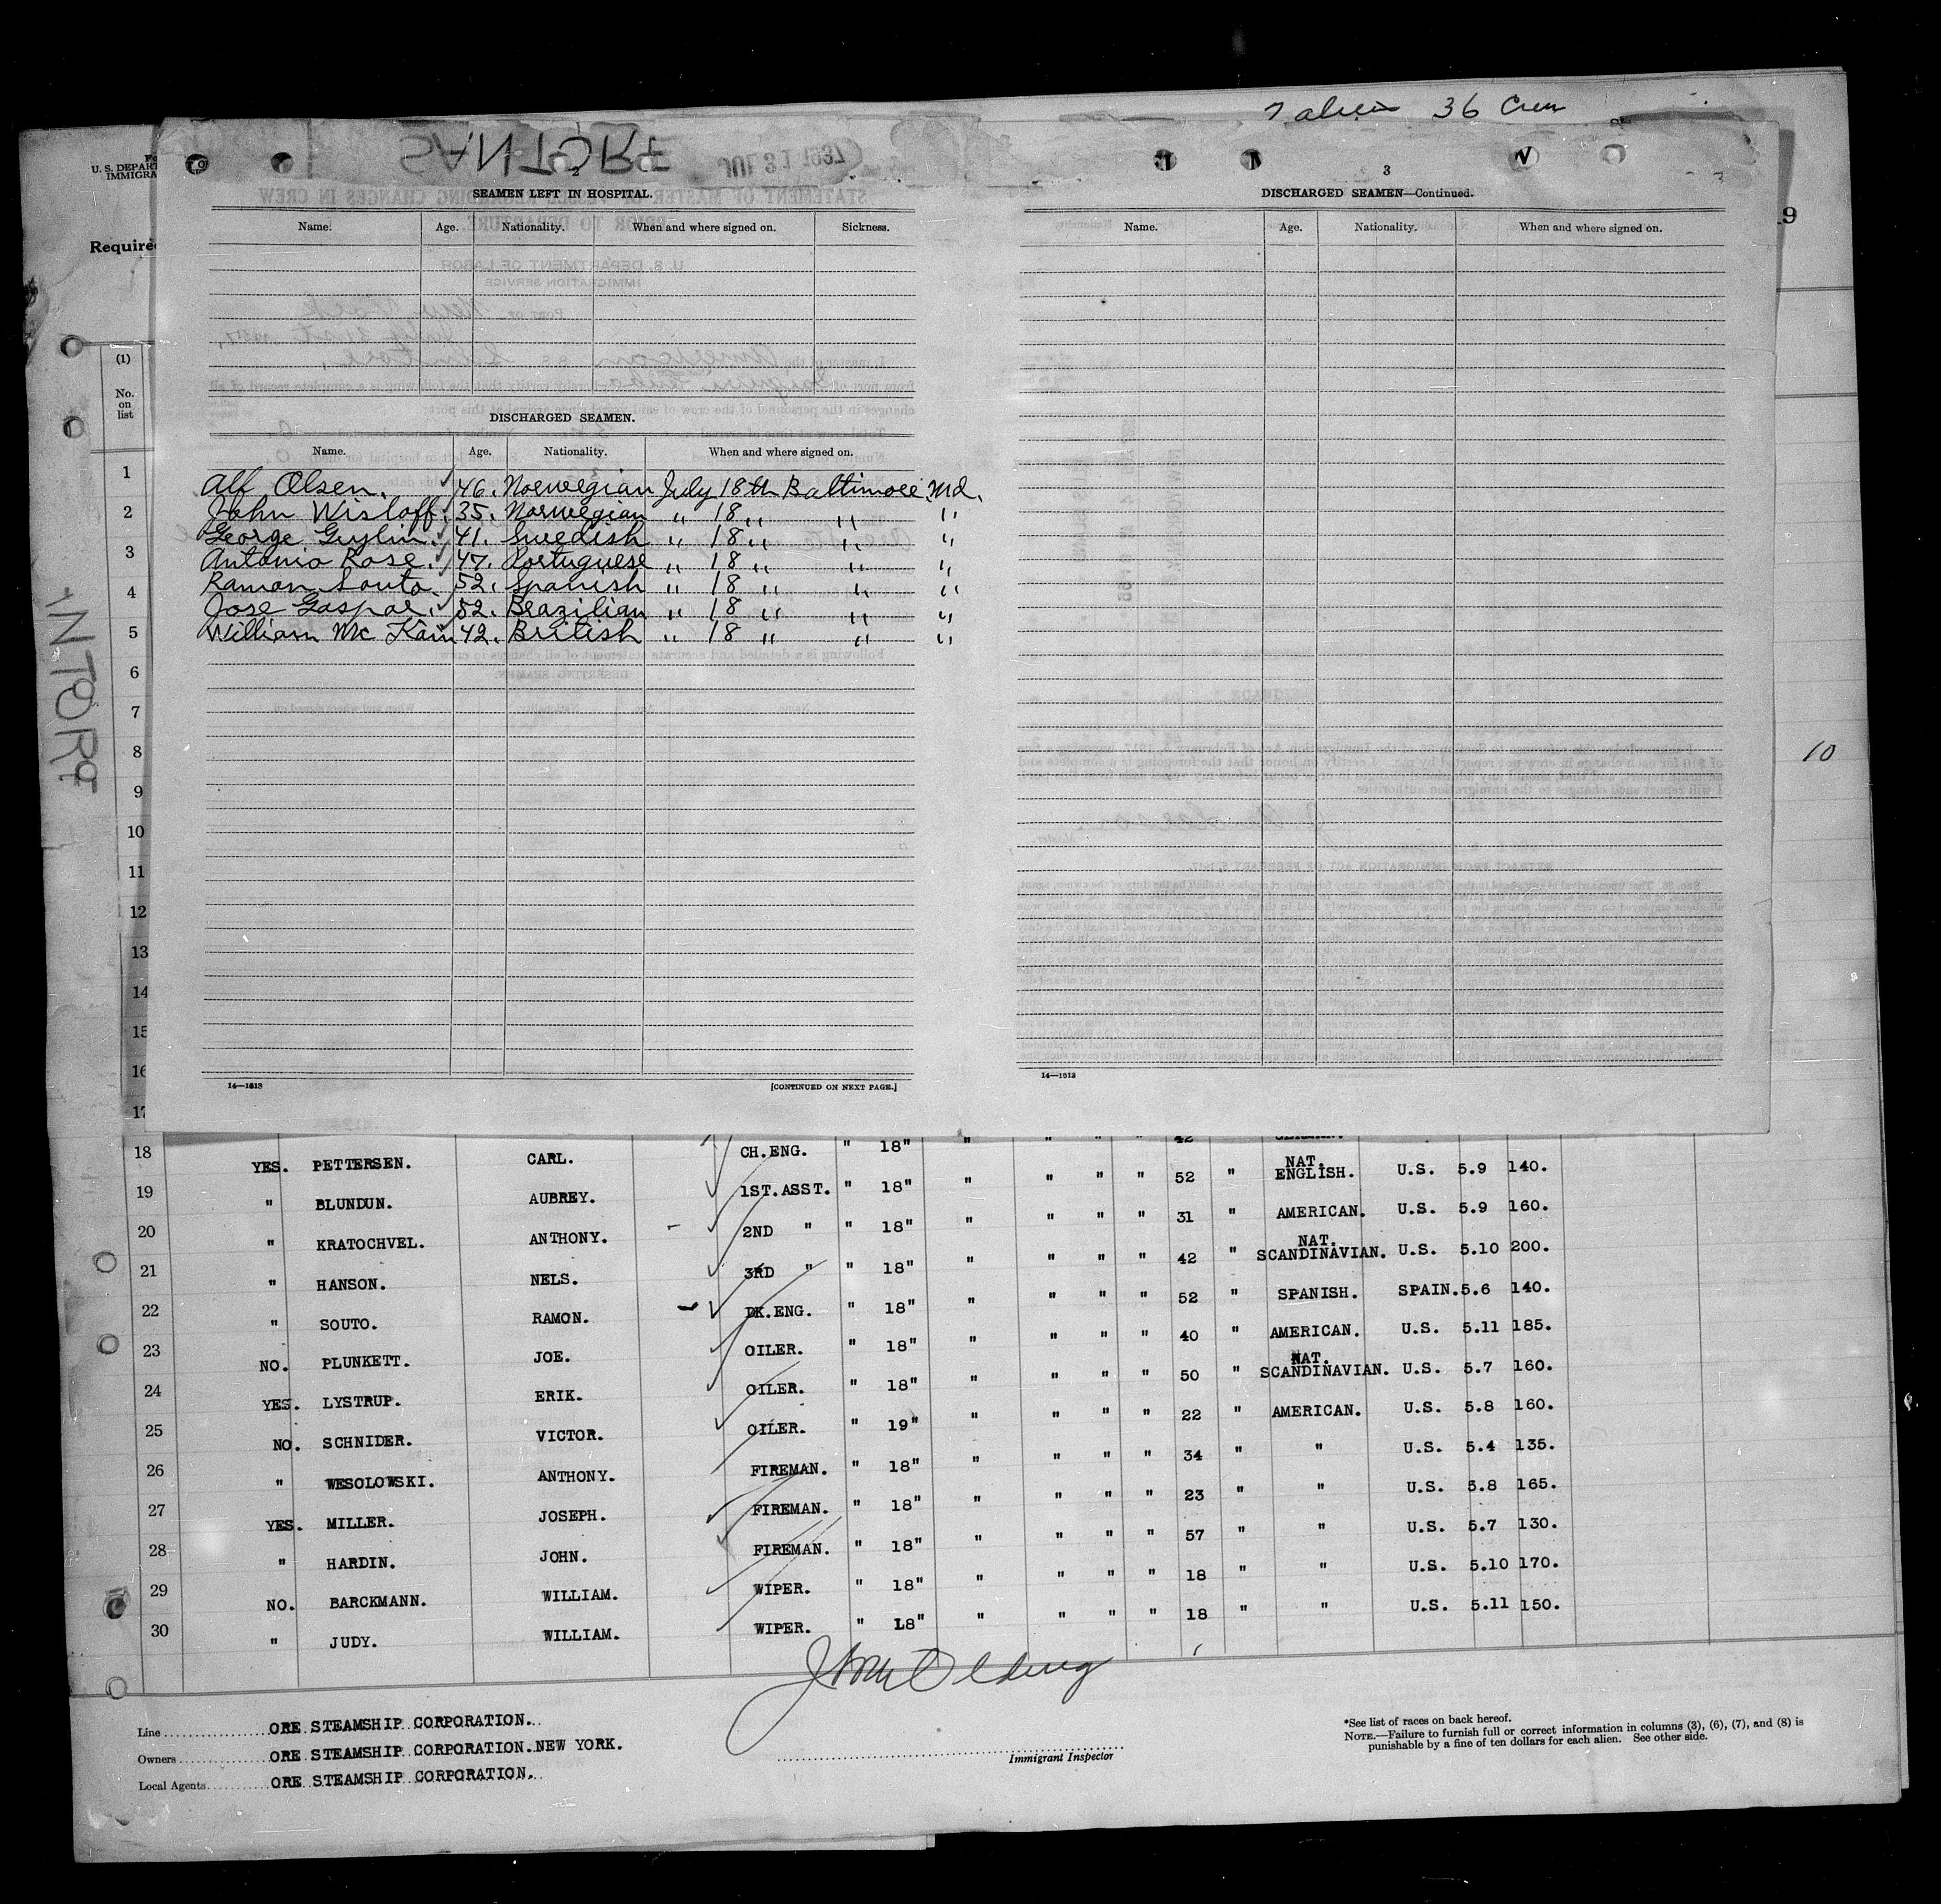 7 alien 36 Crew
SANTORE
U.S. DEPAR
IMMIGRA
Require
2
SEAMEN LEFT IN HOSPITAL.
Name. Age. Nationality. When and where signed on. Sickness.
DISCHARGED SEAMEN.
Name. Age. Nationality. When and where signed on.
Alf Olsen. 46. Norwegian July 18th Baltimore, Md.
John Wisloff. 35. Norwegian " 18 " " "
George Guylin. 41. Swedish " 18 " " "
Antonio Rose. 47. Portuguese " 18 " " "
Ramon Souto. 52. Spanish " 18 " " "
Jose Gaspar. 52. Brazilian " 18 " " "
William Mc Kain 42. British " 18 " " "
14—1613
[CONTINUED ON NEXT PAGE.]
3
DISCHARGED SEAMEN—Continued.
Name. Age. Nationality. When and where signed on.
14—1613
19
10
(1)
No.
on
list
1
2
3
4
5
6
7
8
9
10
11
12
13
14
15
16
17
NTORE
18 YES. PETTERSEN. CARL. CH.ENG. " 18" " " " " 52 " NAT. ENGLISH. U.S. 5.9 140.
19 " BLUNDUN. AUBREY. 1ST.ASST. " 18" " " " " 31 " AMERICAN. U.S. 5.9 160.
20 " KRATOCHVEL. ANTHONY. 2ND " " 18" " " " " 42 " NAT. SCANDINAVIAN. U.S. 5.10 200.
21 " HANSON. NELS. 3RD " " 18" " " " " 52 " SPANISH. SPAIN. 5.6 140.
22 " SOUTO. RAMON. DK.ENG. " 18" " " " " 40 " AMERICAN. U.S. 5.11 185.
23 NO. PLUNKETT. JOE. OILER. " 18" " " " " 50 " NAT. SCANDINAVIAN. U.S. 5.7 160.
24 YES. LYSTRUP. ERIK. OILER. " 18" " " " " 22 " AMERICAN. U.S. 5.8 160.
25 NO. SCHNIDER. VICTOR. OILER. " 19" " " " " 34 " " U.S. 5.4 135.
26 " WESOLOWSKI. ANTHONY. FIREMAN. " 18" " " " " 23 " " U.S. 5.8 165.
27 YES. MILLER. JOSEPH. FIREMAN. " 18" " " " " 57 " " U.S. 5.7 130.
28 " HARDIN. JOHN. FIREMAN. " 18" " " " " 18 " " U.S. 5.10 170.
29 NO. BARCKMANN. WILLIAM. WIPER. " 18" " " " " 18 " " U.S. 5.11 150.
30 " JUDY. WILLIAM. WIPER. " 18"
Line ORE STEAMSHIP CORPORATION.
Owners ORE STEAMSHIP CORPORATION. NEW YORK.
Local Agents ORE STEAMSHIP CORPORATION.
Immigrant Inspector
*See list of races on back hereof.
NOTE.—Failure to furnish full or correct information in columns (3), (6), (7), and (8) is
punishable by a fine of ten dollars for each alien. See other side.